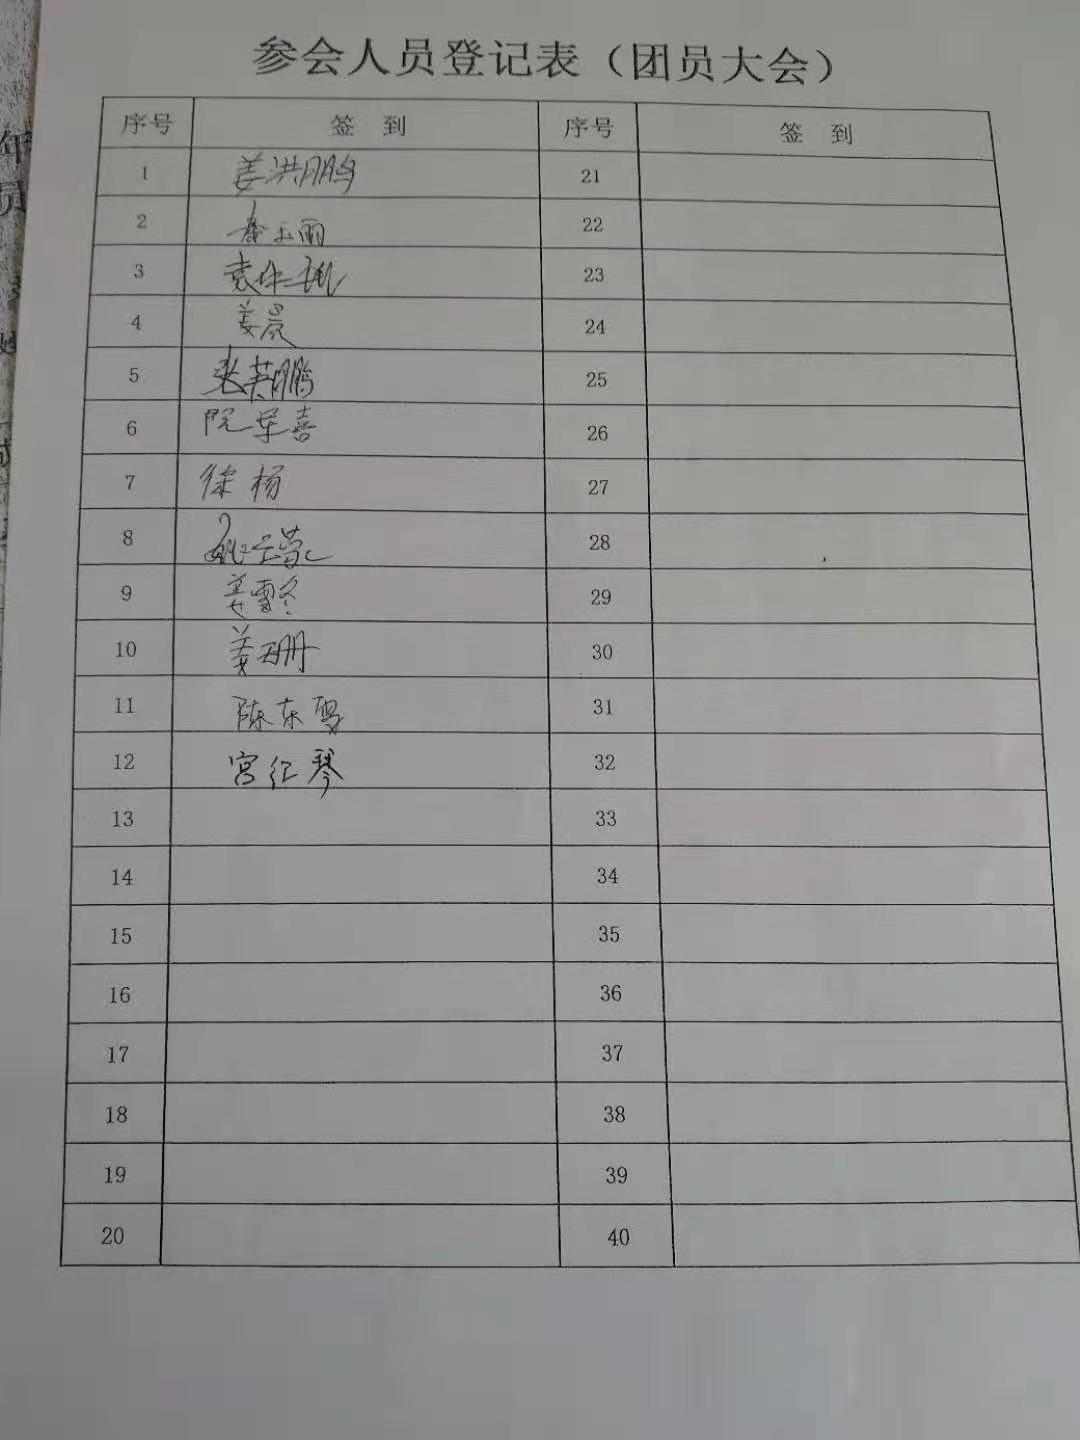 参会人员登记表（团员大会）
序号 签 到 序号 签 到
1 姜洪鹏 21
2 玉丽 22
3 袁 23
4 姜晨 24
5 张英鹏 25
6 阮军喜 26
7 徐杨 27
8 姚 28
9 姜雪冬 29
10 姜珊 30
11 陈东雪 31
12 宫红琴 32
13 33
14 34
15 35
16 36
17 37
18 38
19 39
20 40